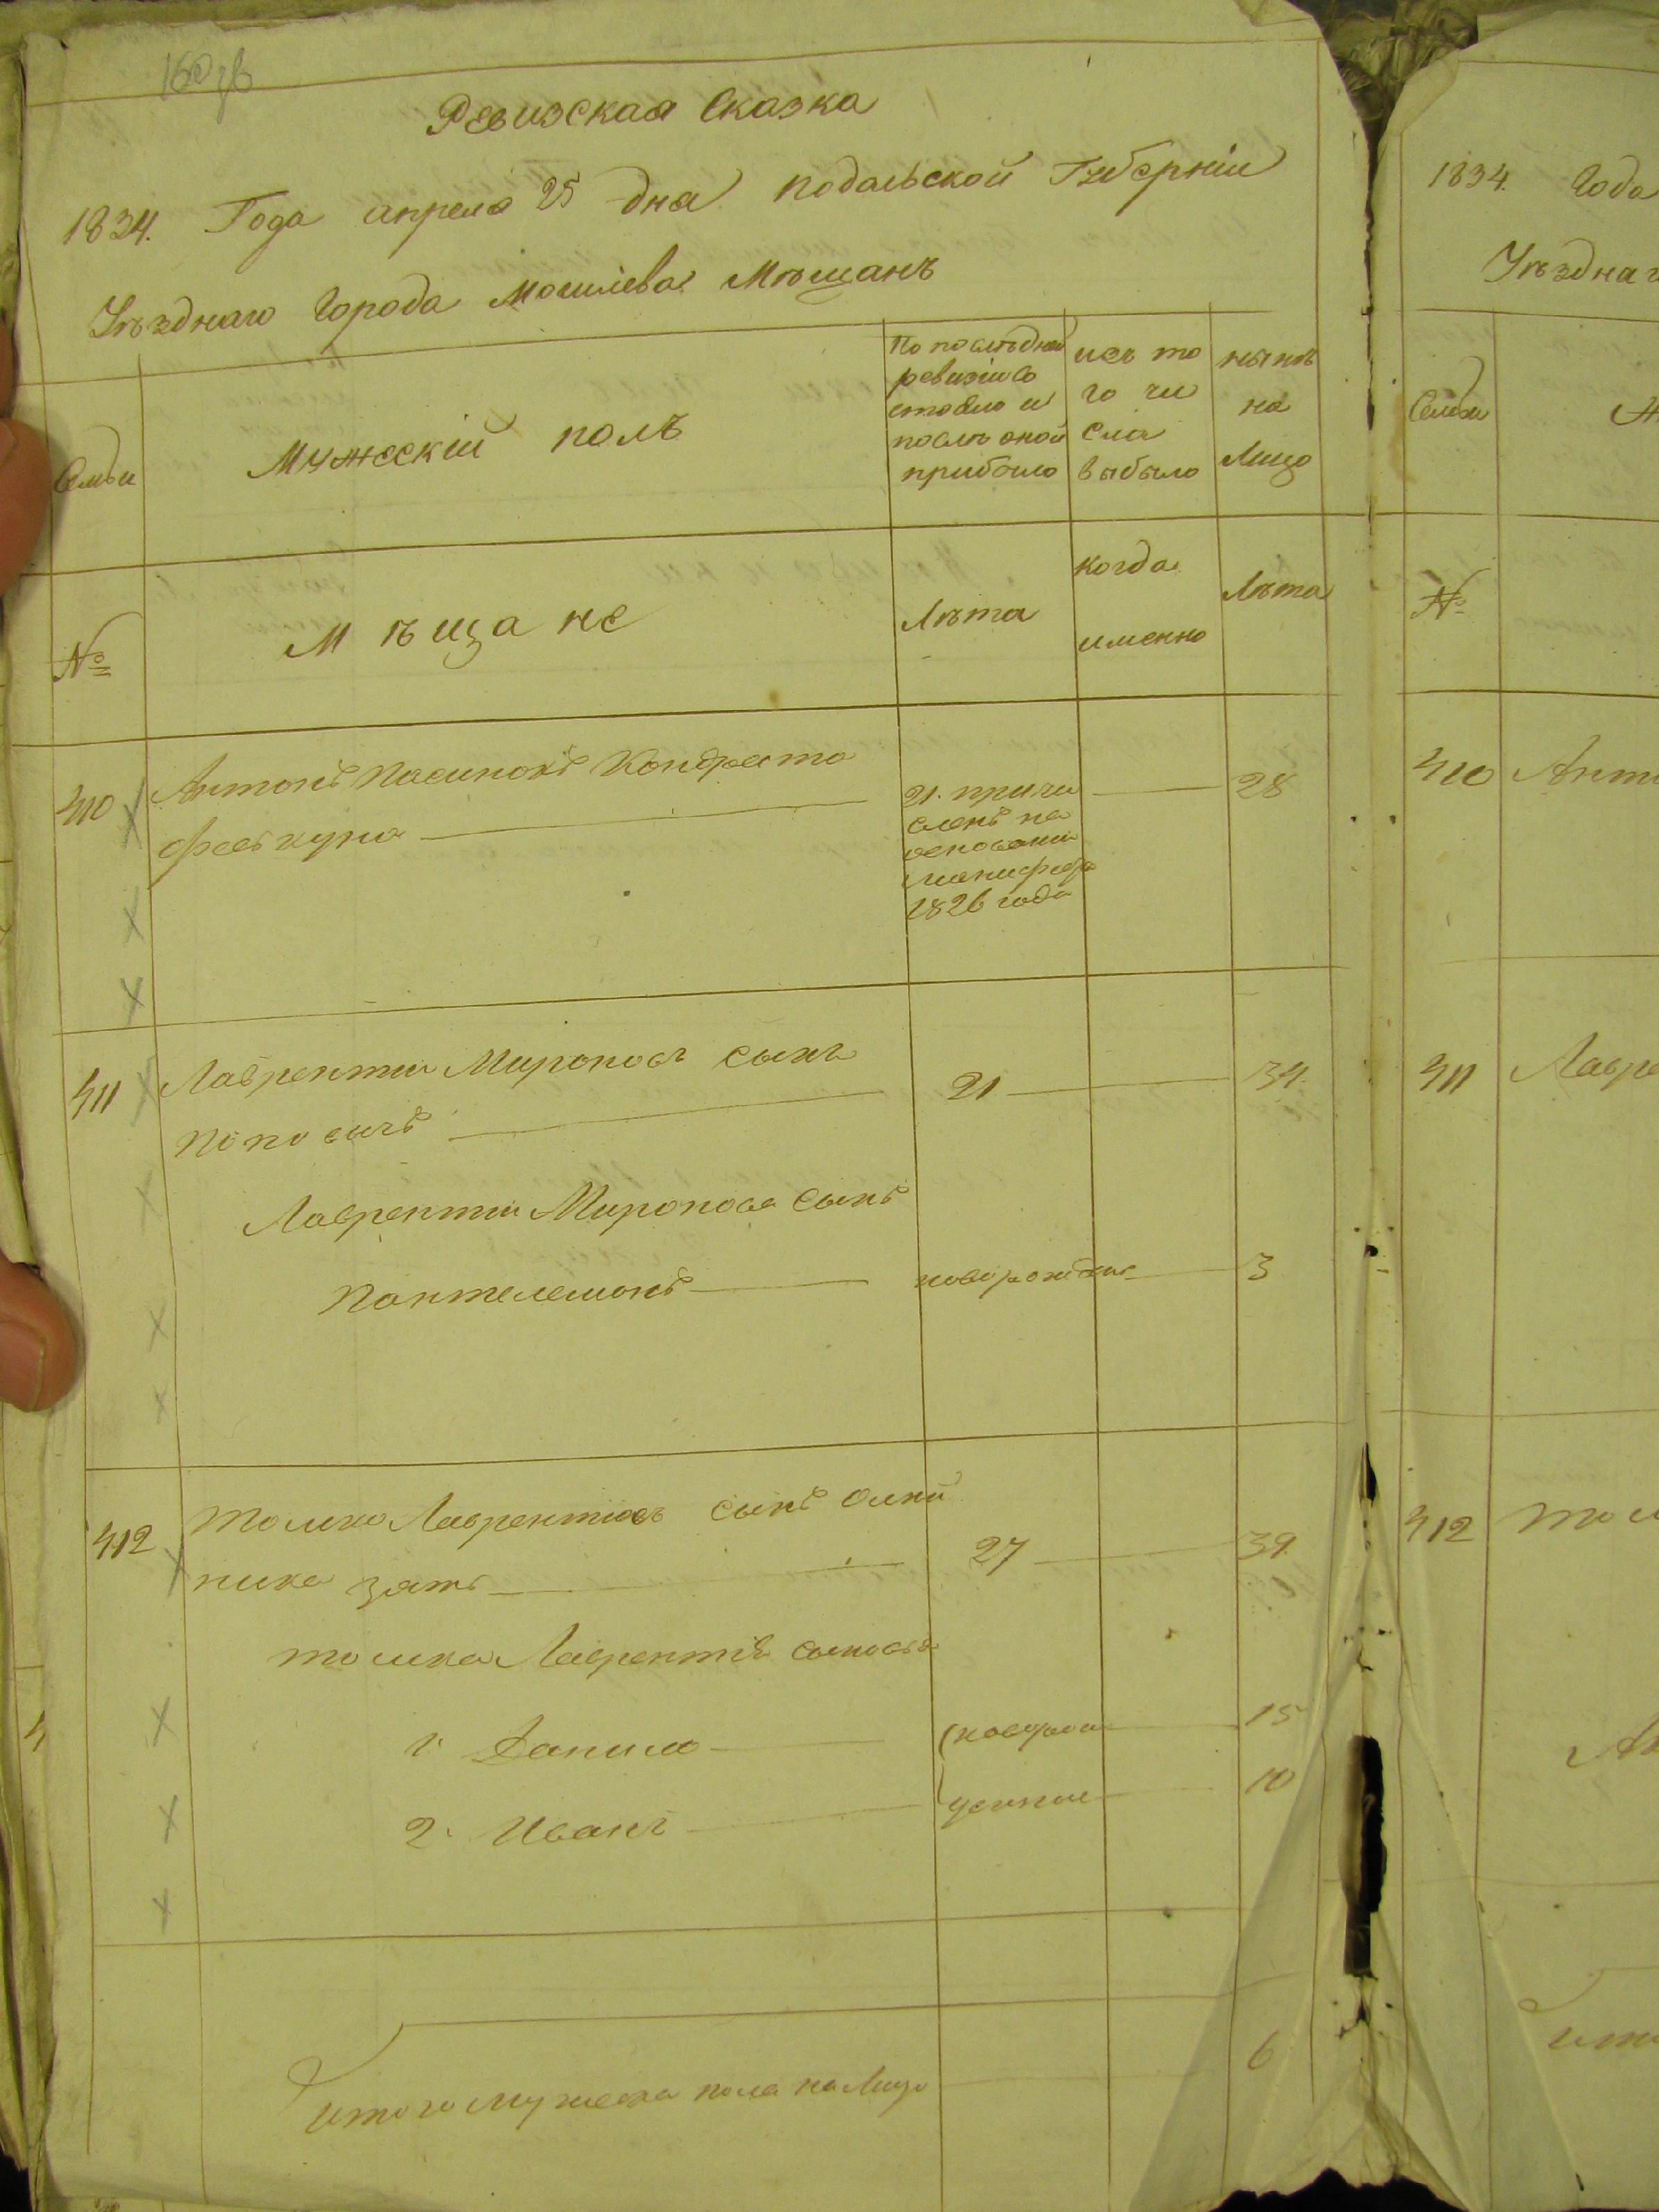 160
Ревизская Сказка
1834. Года апреля 25 дня подольской Губерніи
Уѣзднаго Города Могилева Мѣщанъ
Семьи
Мужескій полъ
По послѣдней
ревизіи со
стояло и
послѣ оной
прибыло
изъ то
го чи
сла
выбыло
нынѣ
на
Лицо
№
Мѣщане
Лѣта
когда
именно
Лѣта
410
Антонъ Пасинокъ Кондрата
21. причи
сленъ на
основании
манифеста
1826 года
28
411
Лаврентий Мироновъ сынъ
21
34.
Лаврентия Миронова сынъ
Пантелемонъ
новорожден
3
412
Томко Лаврентиевъ сынъ Олий
ника зять
27
39.
томка Лаврентія сыновья
1. Данило
15
2. Иванъ
10
итого мужеска пола на Лицо
6
1834. Года
Уѣзднаго
Семьи
№
410
411
Лавре
412